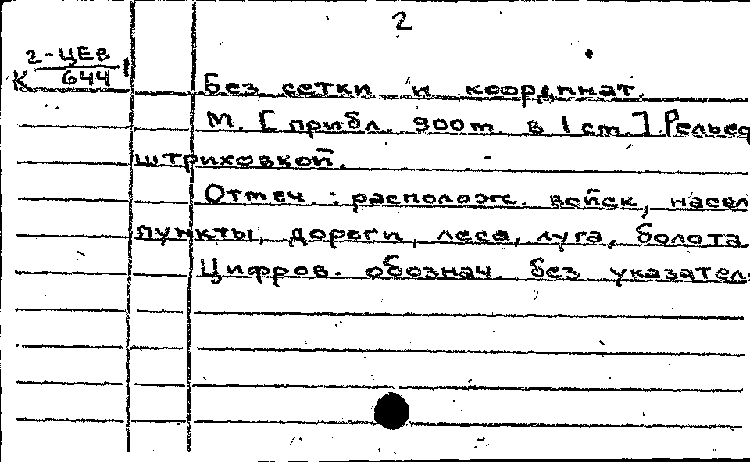 2
2-ЦЕВ
К 644
Без сетки и координат.
М. [прибл. 900 m. в 1 cm.] Рельеф
штриховкой.
Отмеч.: располож. войск, насел
пункты, дороги, леса, луга, болота
Цифров. обознач. без указател